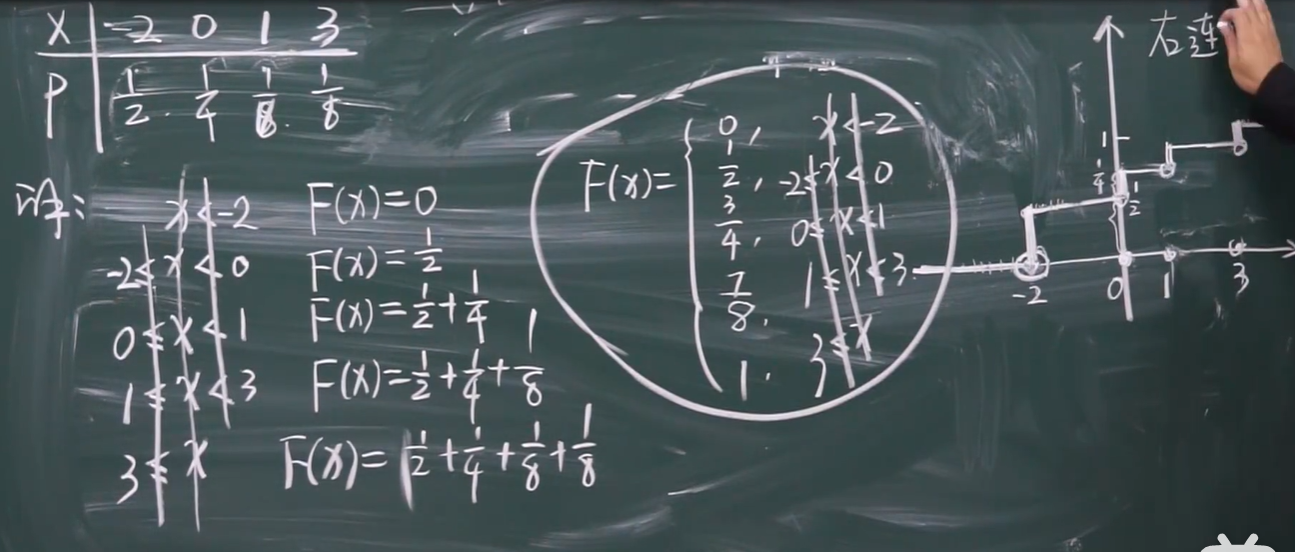 X -2 0 1 3
P 1/2 1/4 1/8 1/8
解:
x<-2 F(x)=0
-2≤x<0 F(x)=1/2
0≤x<1 F(x)=1/2+1/4
1≤x<3 F(x)=1/2+1/4+1/8
3≤x F(x)=1/2+1/4+1/8+1/8
F(x)={
0, x<-2
1/2, -2≤x<0
3/4, 0≤x<1
7/8, 1≤x<3
1. 3≤x
右连
1
1/4
1/2
-2 0 1 3